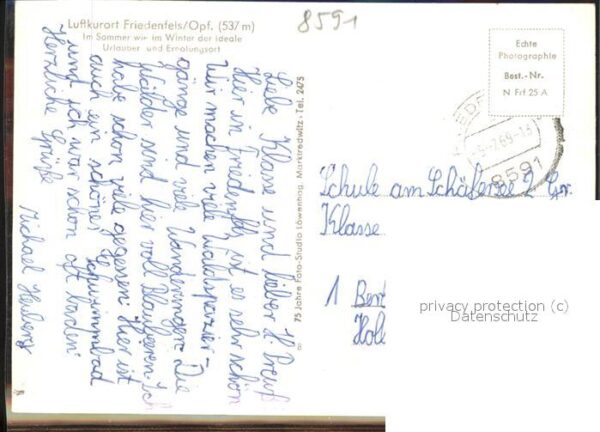 8591
Luftkurort Friedenfels/Opf. (537 m)
Im Sommer wir im Winter der ideale
Urlauber und Erholungsort
Liebe Klasse und lieber H. Preuß
Hier in Friedenfels ist es sehr schön
Wir machen viel Waldspazier-
gänge und viele Wanderungen. Die
Wälder sind hier voll Blaubeeren. Ich
habe schon viele gegessen. Hier ist
auch ein schönes Schwimmbad
und ich war schon oft baden.
Herzliche Grüße
Michael
75 Jahre Foto-Studio Löwenhag, Marktredwitz · Tel. 2475
Echte
Photographie
Best.-Nr.
N Frf 25 A
8591
Schule am Schäfersee 2. Gr.
Klasse
1 Berl
Hol
privacy protection (c)
Datenschutz